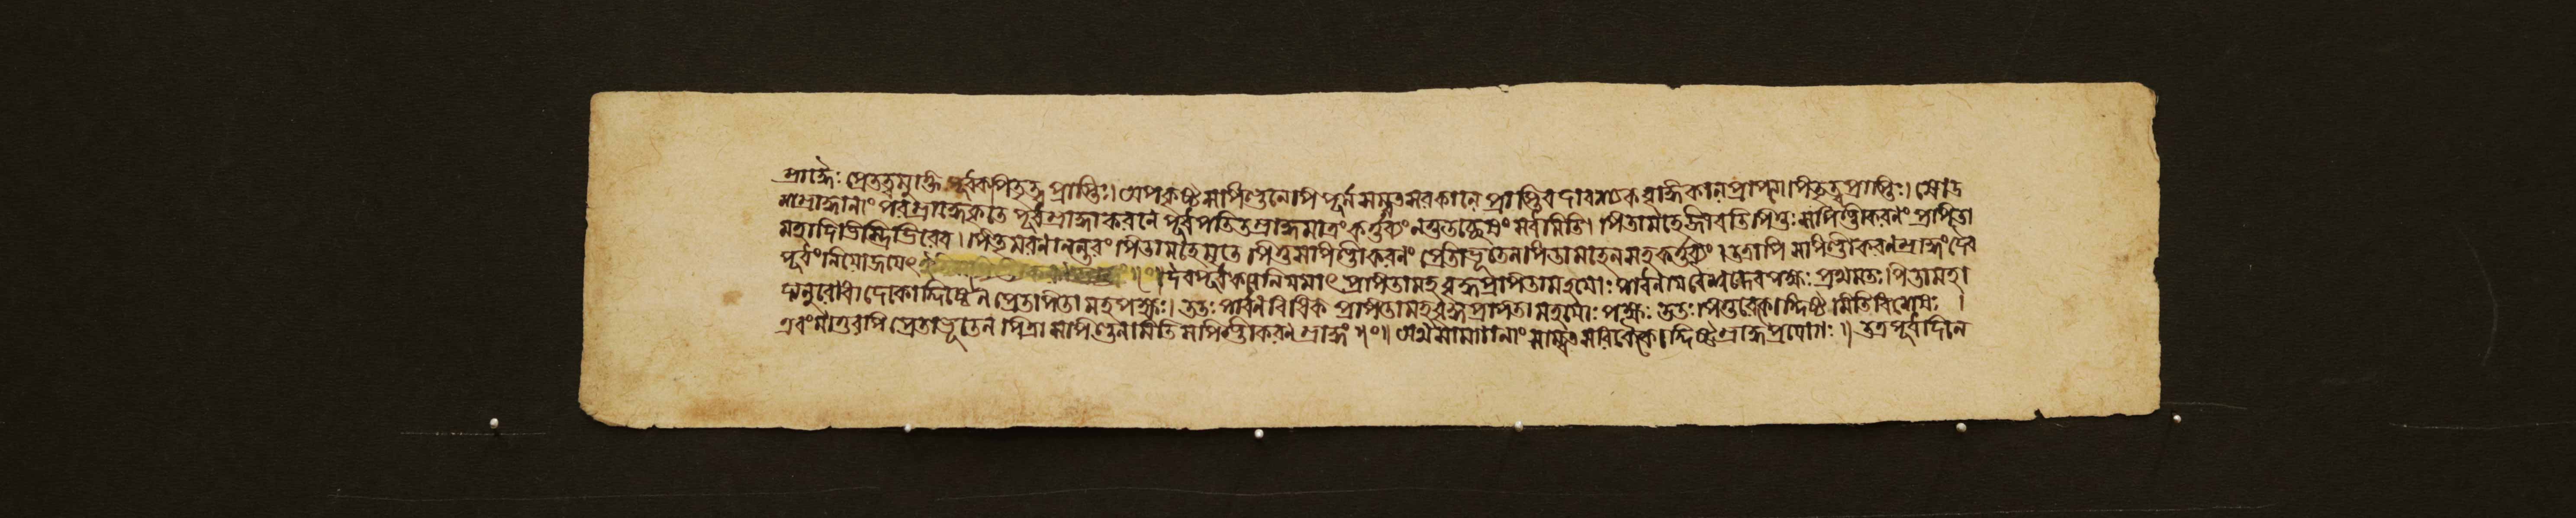 শ্রাদ্ধৈঃ প্রেতত্বমুক্তি পূর্বকপিতৃত্ব প্রাপ্তিঃ। অপকৃষ্ট সপিণ্ডনেপি পূর্ণ সম্বৎসরকালে প্রাপ্তিবদাবশ্যক বৃদ্ধিকালপ্রাপ্য পিতৃত্বপ্রাপ্তিঃ। ষোড়
শশ্রাদ্ধানাং পরশ্রাদ্ধে কৃতে পূর্বশ্রাদ্ধাকরণে পূর্বপতিতশ্রাদ্ধমাত্রং কর্ত্তব্যং নতুতচ্ছেষং সর্বমিতি। পিতামহে জীবতি পিতুঃ সপিণ্ডীকরণং প্রপিতা
মহাদিভিস্ত্রিভিরেব। পিতৃমরণানন্তরং পিতামহেমৃতে পিতৃসপিণ্ডীকরণং প্রেতীভূতেন পিতামহেনসহকর্ত্তব্যং। তত্রাপি সপিণ্ডীকরণশ্রাদ্ধং দৈব
পূর্বং নিয়োজয়েৎ ॥ং॥ দৈবপূর্বকত্বনিয়মাৎ প্রপিতামহ বৃদ্ধপ্রপিতামহয়োঃ পার্বণীয়বৈশ্বদেবপক্ষঃ প্রথমতঃ পিতামহা
দ্যনুরোধাদেকোদ্দিষ্টেন প্রেতপিতামহপক্ষঃ। ততঃ পার্বণবিধিক প্রপিতামহবৃদ্ধপ্রপিতামহয়োঃ পক্ষঃ ততঃ পিতুরেকোদ্দিষ্ট মিতিবিশেষঃ ।
এবং মাতুরপি প্রেতীভূতেন পিত্রা সপিণ্ডনমিতি সপিণ্ডীকরণশ্রাদ্ধং ॥ং॥ অথ সামগানাং সাম্বৎসরিকৈকোদ্দিষ্টশ্রাদ্ধপ্রয়োগঃ ॥ তত্রপূর্বদিনে